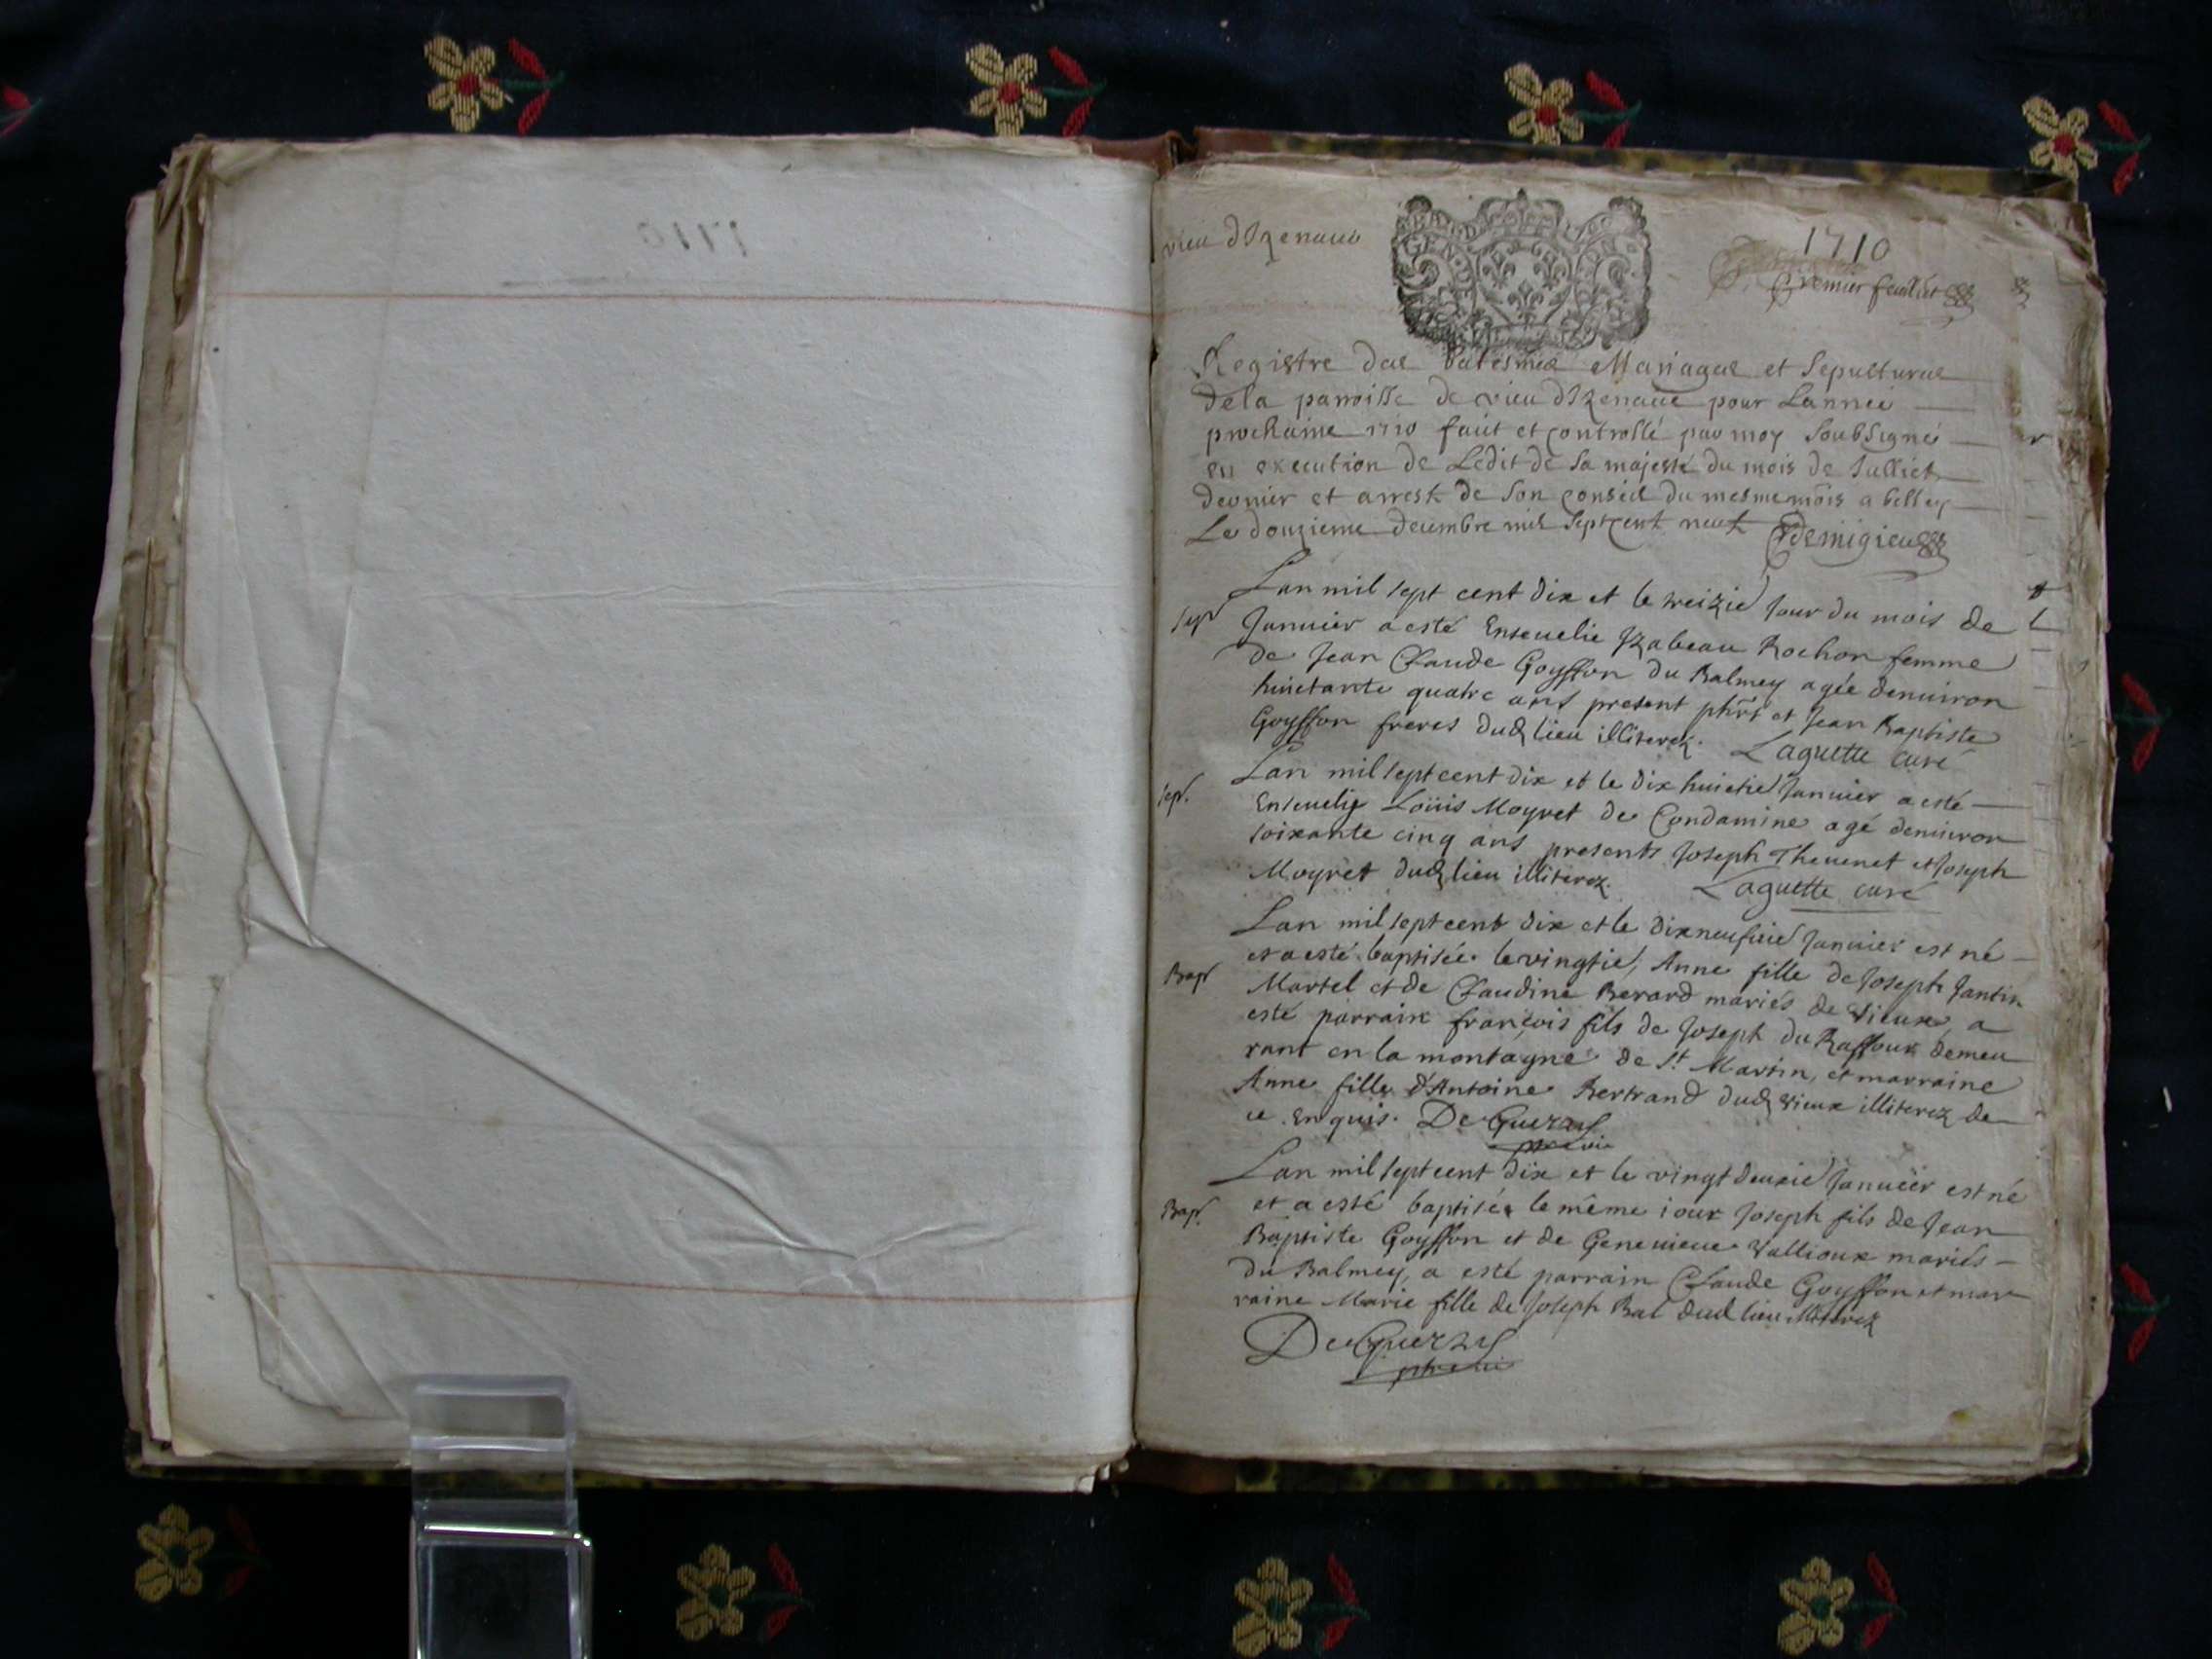 vieu dIzenave
GEN
1710
Premier feuillet
Registre des batesmes Mariages et Sepultures
dela parroisse de vieu dIzenave pour Lannee
prochaine 1710 fait et controllé par moy soubsigné
en execution de Ledit de sa majesté du mois de Julliet
dernier et arrest de son conseil du mesme mois a belley
Le douzieme decembre mil sept cent neuf Demigieu
Lan mil sept cent dix et le treizie Jour du mois de
Sep
Januier a esté Enseuelie Izabeau Rochon femme
de Jean Claude Goyffon du Balmey agée denuiron
huictante quatre ans present phrt et Jean Baptiste
Goyffon freres dud lieu illiterez. Laguette curé
Lan mil sept cent dix et le dix huictie Januier a esté
Sep.
Enseuely Loüis Moyret de Condamine agé denuiron
soixante cinq ans presents Joseph Theuenet et Joseph
Moyret dud lieu illiterez. Laguette curé
Lan mil sept cent dix et le dixneufuie Januier est né
et a esté baptisée le vingtie, Anne fille de Joseph Jantin
Bap
Martel et de Claudine Berard mariés de Vieux, a
esté parrain françois fils de Joseph du Raffour demeu
rant en la montagne de St Martin, et marraine
Anne fille d'Antoine Bertrand dud Vieux illiterez de
ce Enquis. DeGuerzy
Lan mil sept cent dix et le vingt deuxie Januier est né
Bap.
et a esté baptisé le même iour Joseph fils de Jean
Baptiste Goyffon et de Geneuieue Vallioux mariés
du Balmey, a esté parrain Claude Goyffon et mar
raine Marie fille de Joseph Bal dud lieu illiterez
DeGuerzy